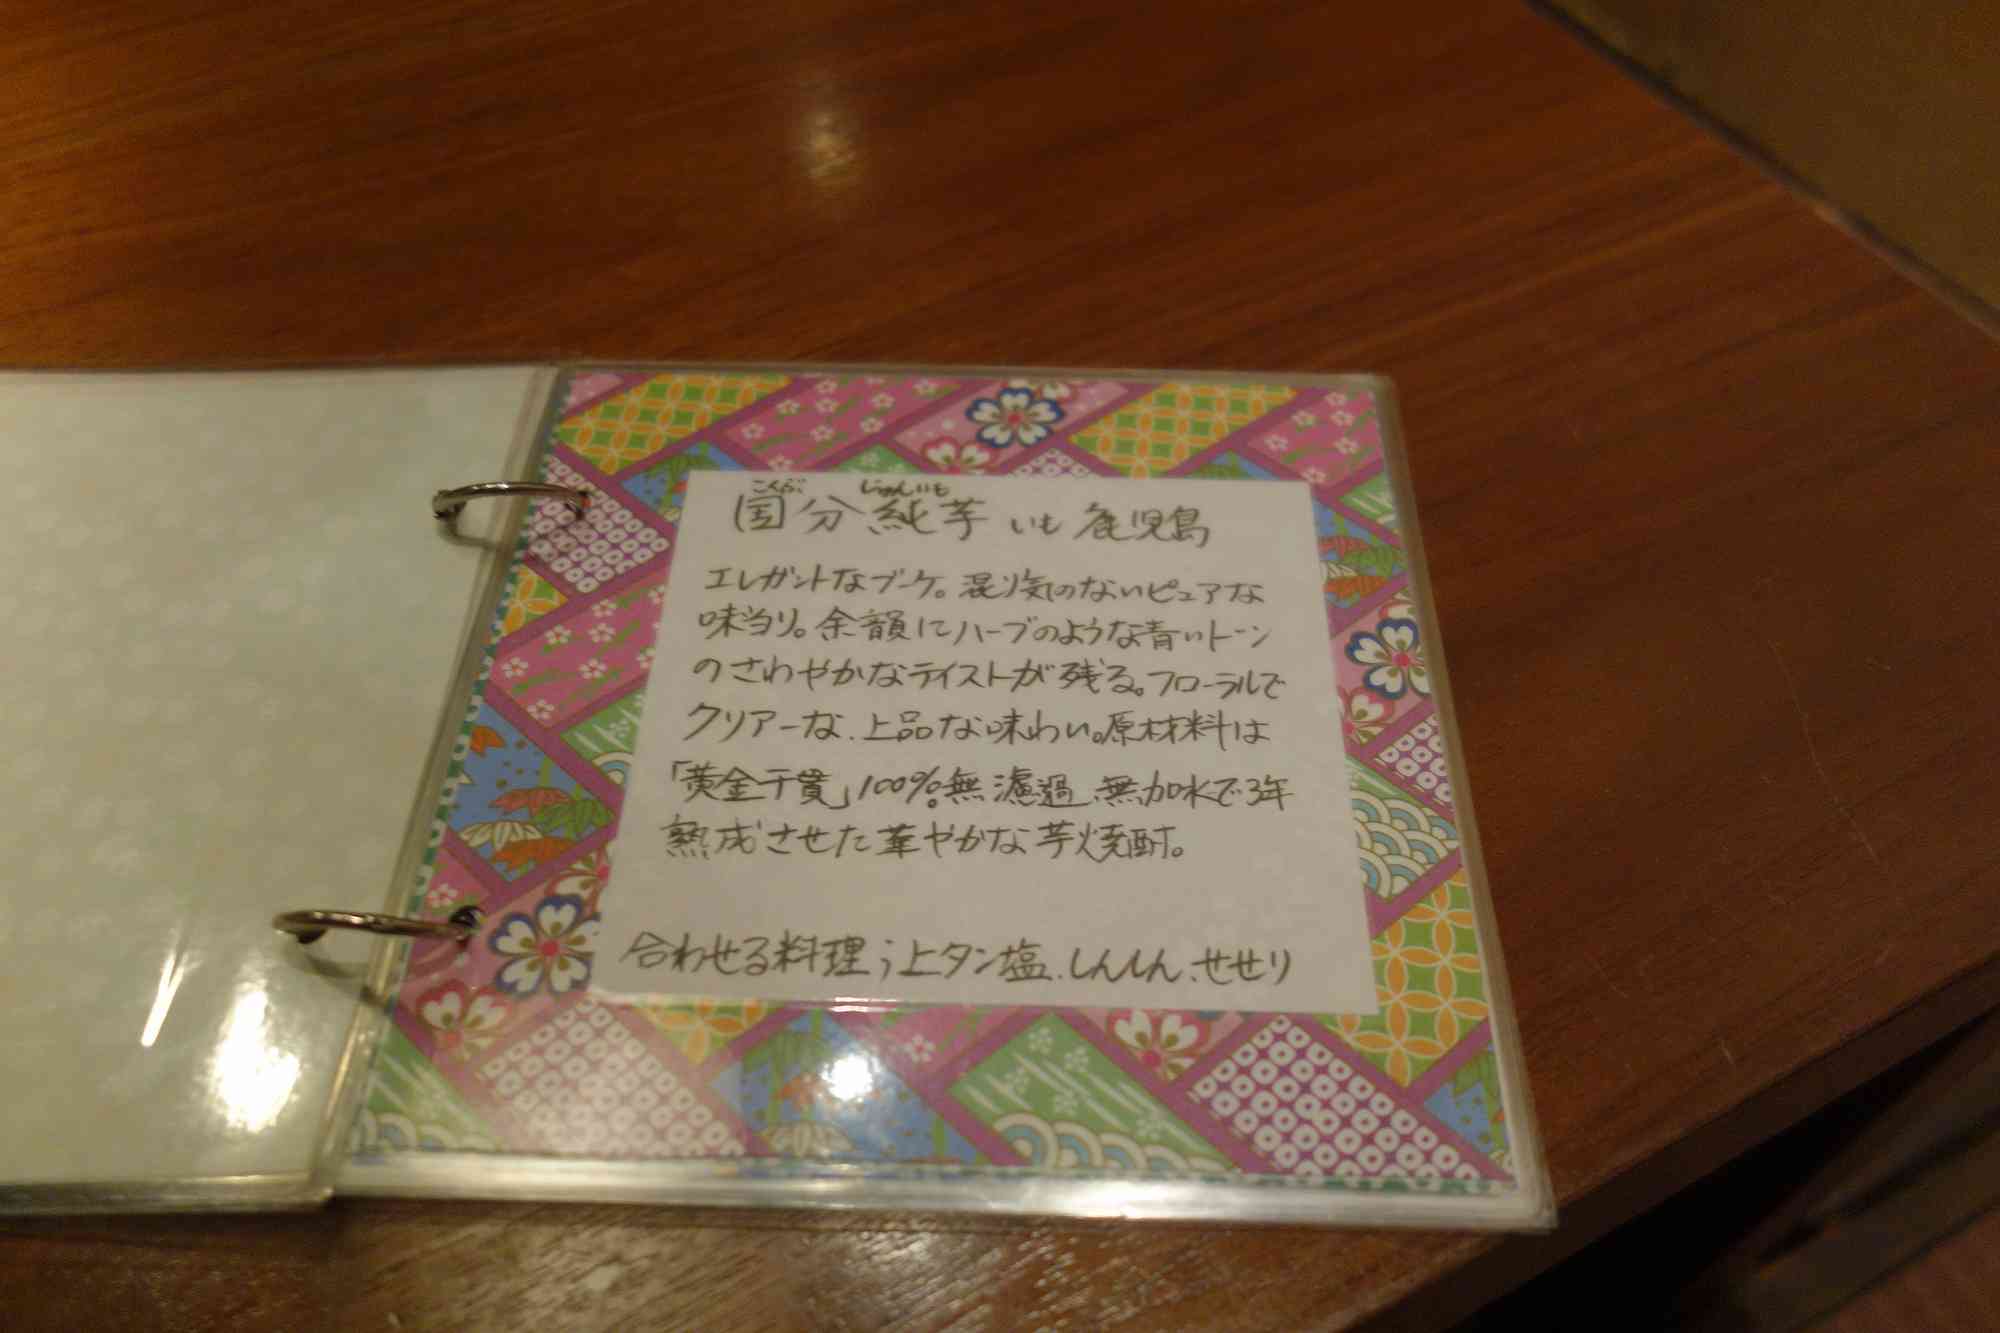 こくぶ じゅんいも
国分純芋 いも 鹿児島
エレガントなブーケ。混り気のないピュアな
味当り。余韻にハーブのような青いトーン
のさわやかなテイストが残る。フローラルで
クリアーな、上品な味わい。原材料は
「黄金千貫」100%。無濾過、無加水で3年
熟成させた華やかな芋焼酎。
合わせる料理；上タン塩、しんしん、せせり